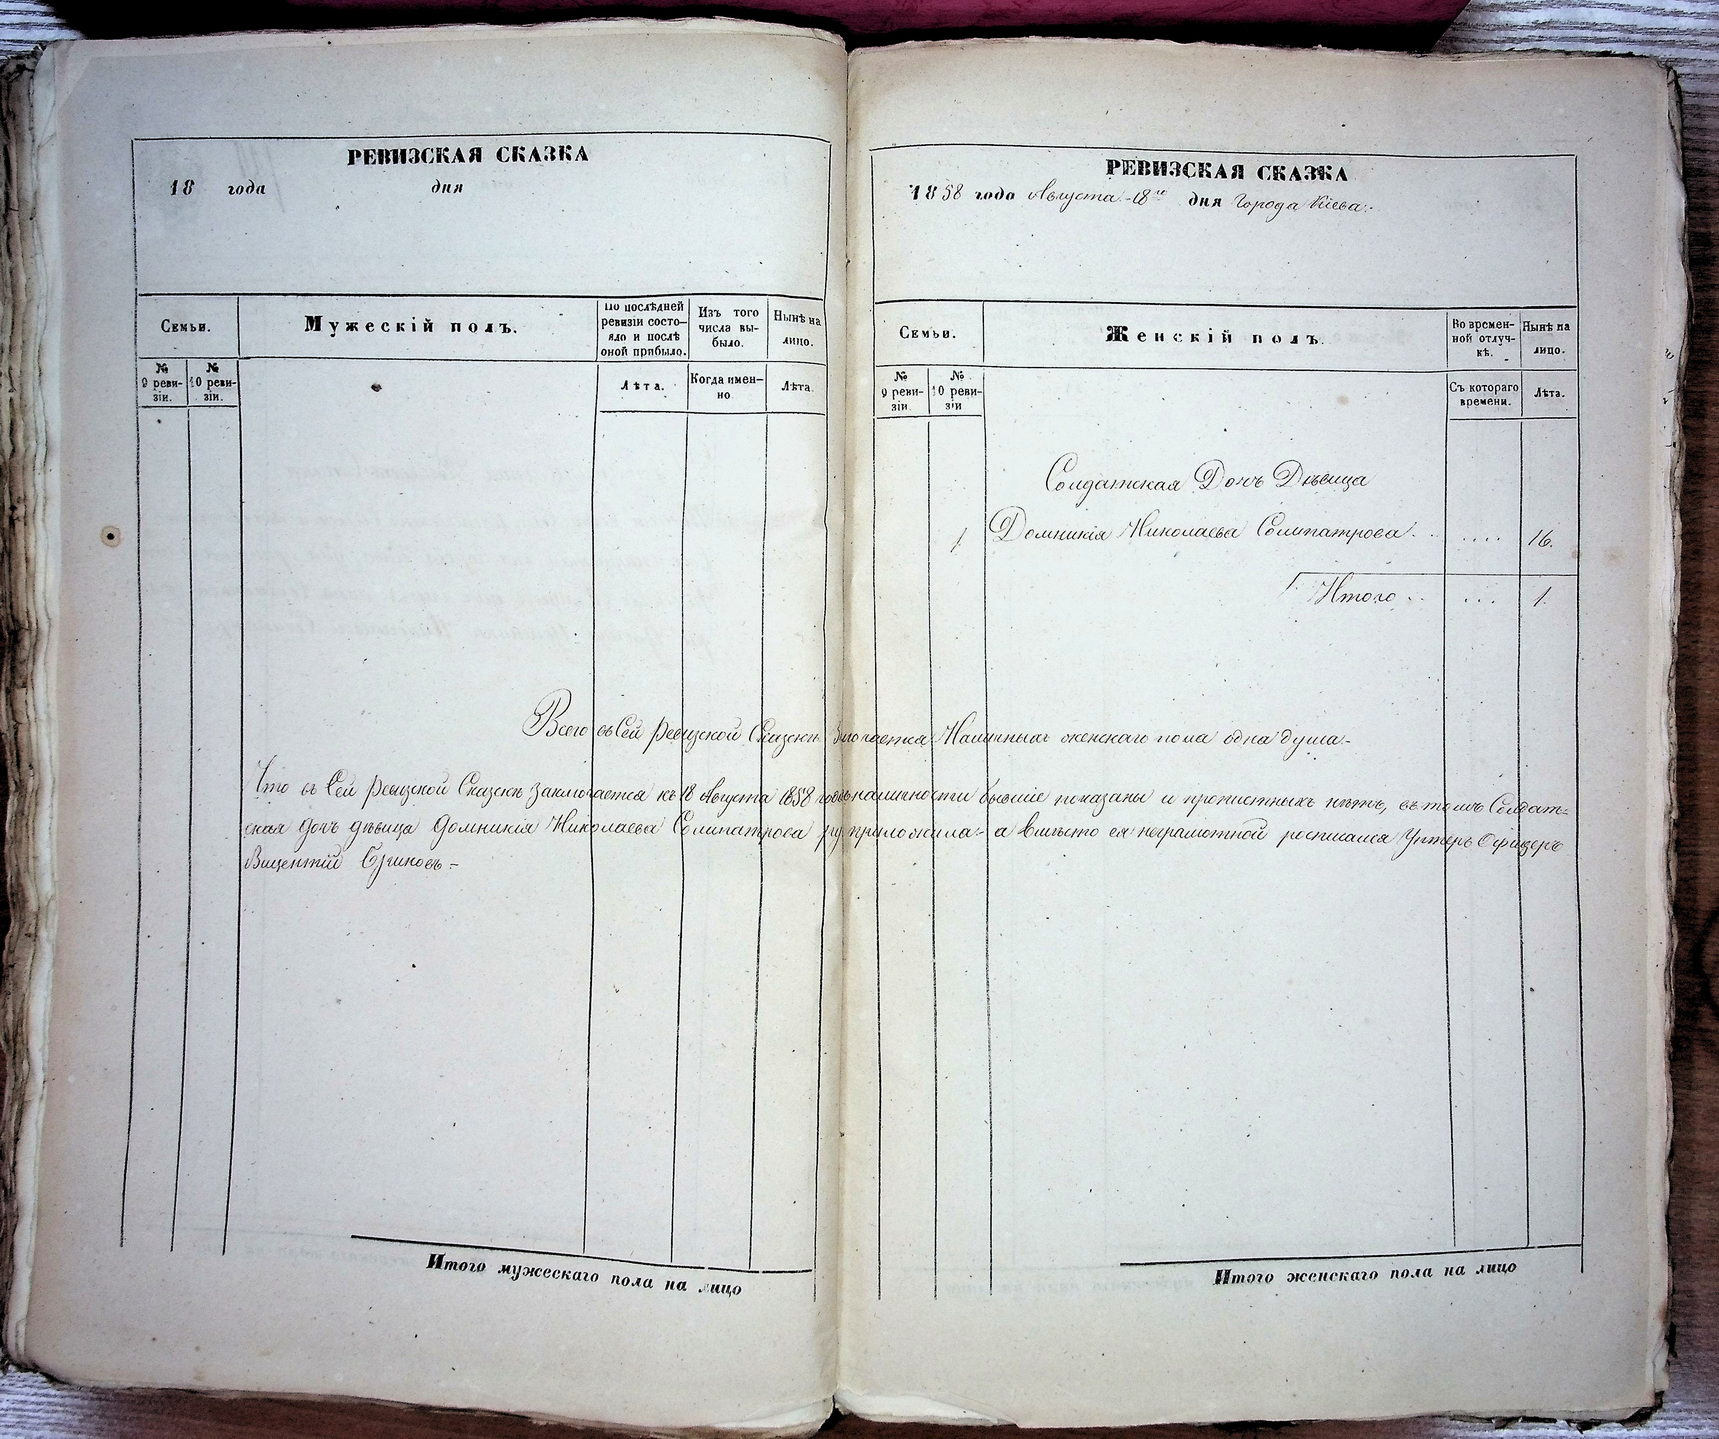 РЕВИЗСКАЯ СКАЗКА
18 года дня
Семьи.
Мужескій полъ.
По послѣдней ревизіи состо-
яло и послѣ оной прибыло.
Изъ того числа вы-
было.
Нынѣ на лицо.
№ 9 реви-
зіи.
№ 10 реви-
зіи.
Лѣта.
Когда имен-
но
Лѣта.
Итого мужескаго пола на лицо
РЕВИЗСКАЯ СКАЗКА
1858 года Августа 18го дня Города Кіева.
Семьи.
Женскій полъ.
Во времен-
ной отлуч-
кѣ.
Нынѣ на лицо.
№ 9 реви-
зіи.
№ 10 реви-
зіи
Съ котораго
времени.
Лѣта.
Солдатская Дочь Дѣвица
1 Домникія Николаева Солипатрова . . . . . . 16.
Итого . . . . . 1.
Всего въ Сей Ревизской Сказкѣ Значается Наличныхъ женскаго пола одна душа.-
Что въ Сей Ревизской Сказкѣ заключается къ 18 Августа 1858 года в наличности бывшіе показаны и прописныхъ нѣтъ, въ томъ Солдат-
ская дочь дѣвица Домникія Николаева Солипатрова руку приложила- а вмѣсто ея неграмотной росписался Унтеръ Офицеръ
Вицентій
Итого женскаго пола на лицо